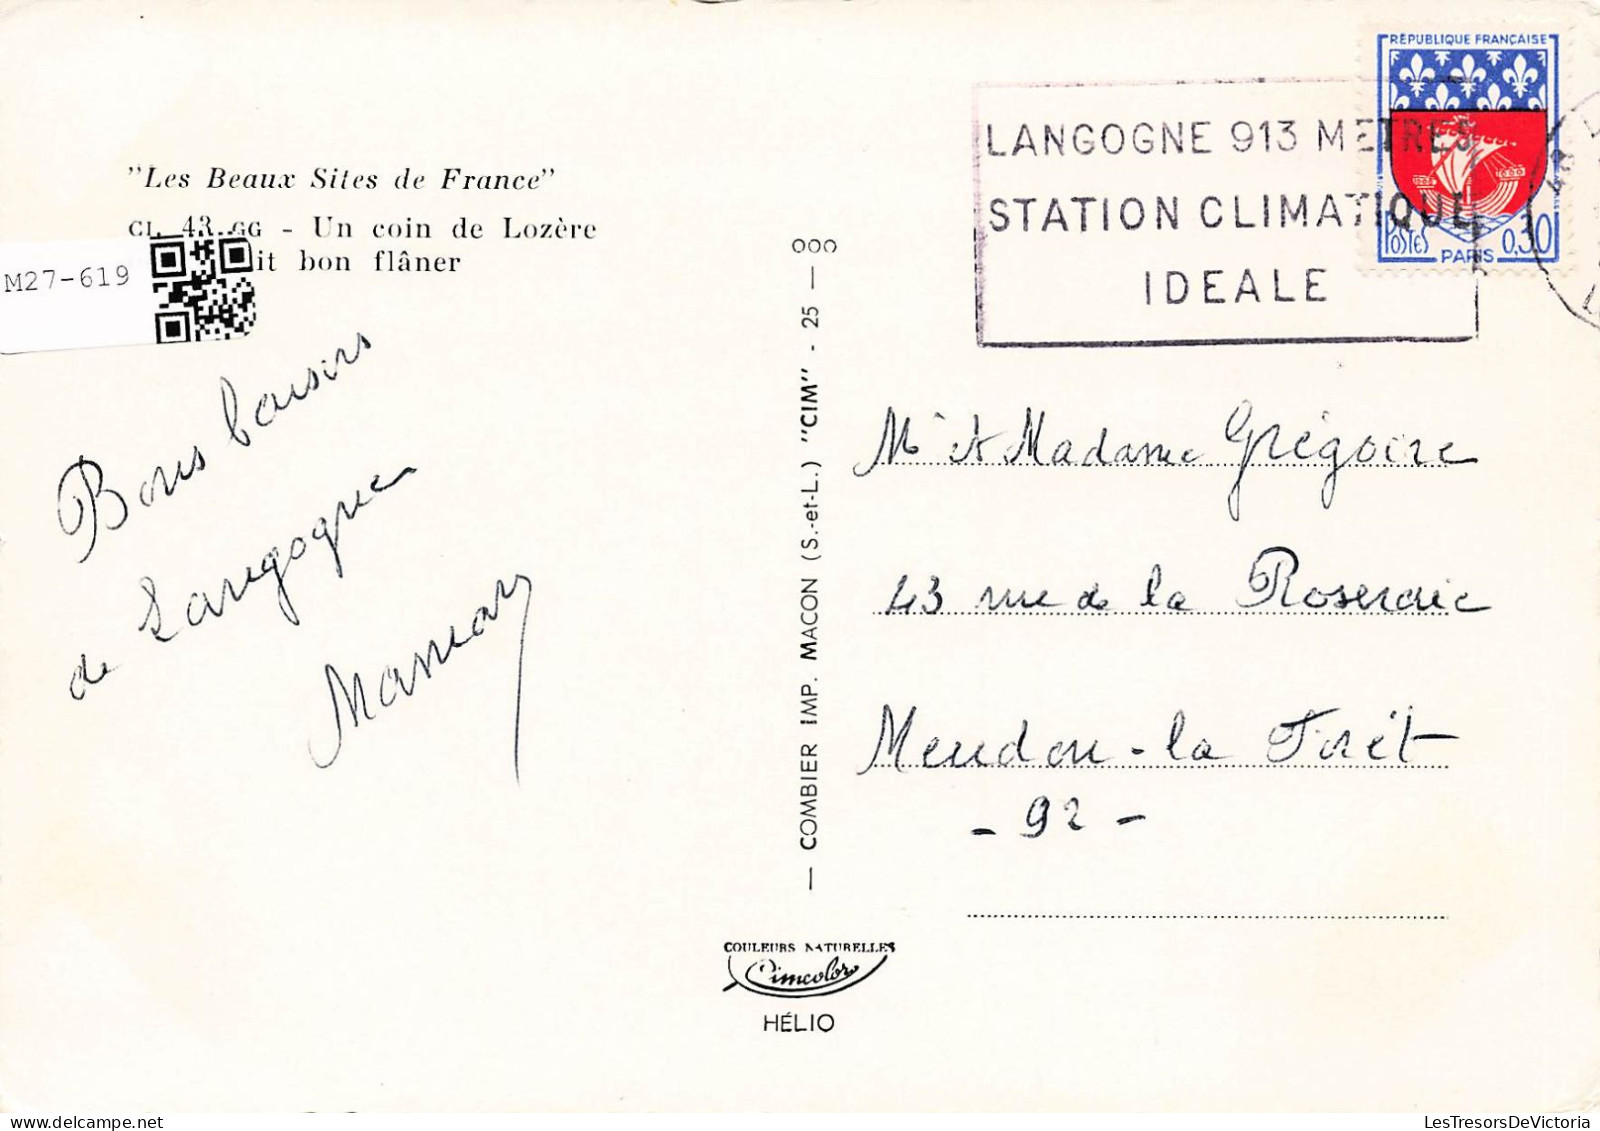 "Les Beaux Sites de France"
CL 43 GG - Un coin de Lozère
it bon flâner
M27-619
Bons baisers
de Langogne
Maman
— COMBIER IMP. MACON (S.-et-L.) "CIM" - 25 —
LANGOGNE 913 METRES
STATION CLIMATIQUE
IDEALE
RÉPUBLIQUE FRANÇAISE
POSTES
0,30
PARIS
Mr et Madame Grégoire
43 rue de la Roseraie
Meudon-la Forêt
- 92 -
COULEURS NATURELLES
Cimcolor
HÉLIO
LesTresorsDeVictoria